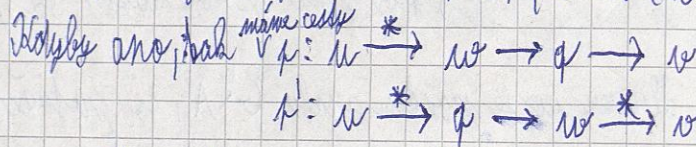 Kdyby ano, tak máme cesty p: u →* w → q → v
p': u →* q → w →* v